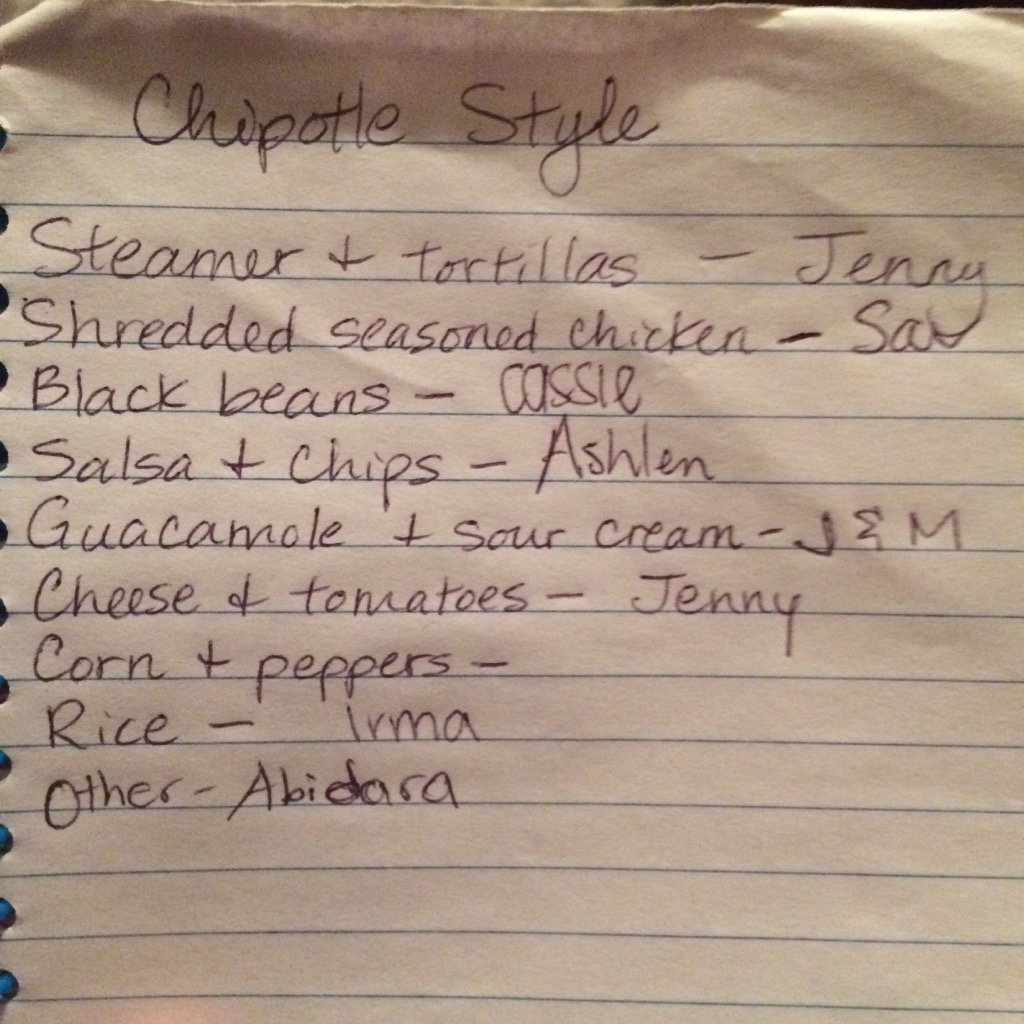 Chipotle Style
Steamer + tortillas - Jenny
Shredded seasoned chicken - Sav
Black beans - Cassie
Salsa + Chips - Ashlen
Guacamole + sour cream - J & M
Cheese + tomatoes - Jenny
Corn + peppers -
Rice - Irma
Other - Abidara